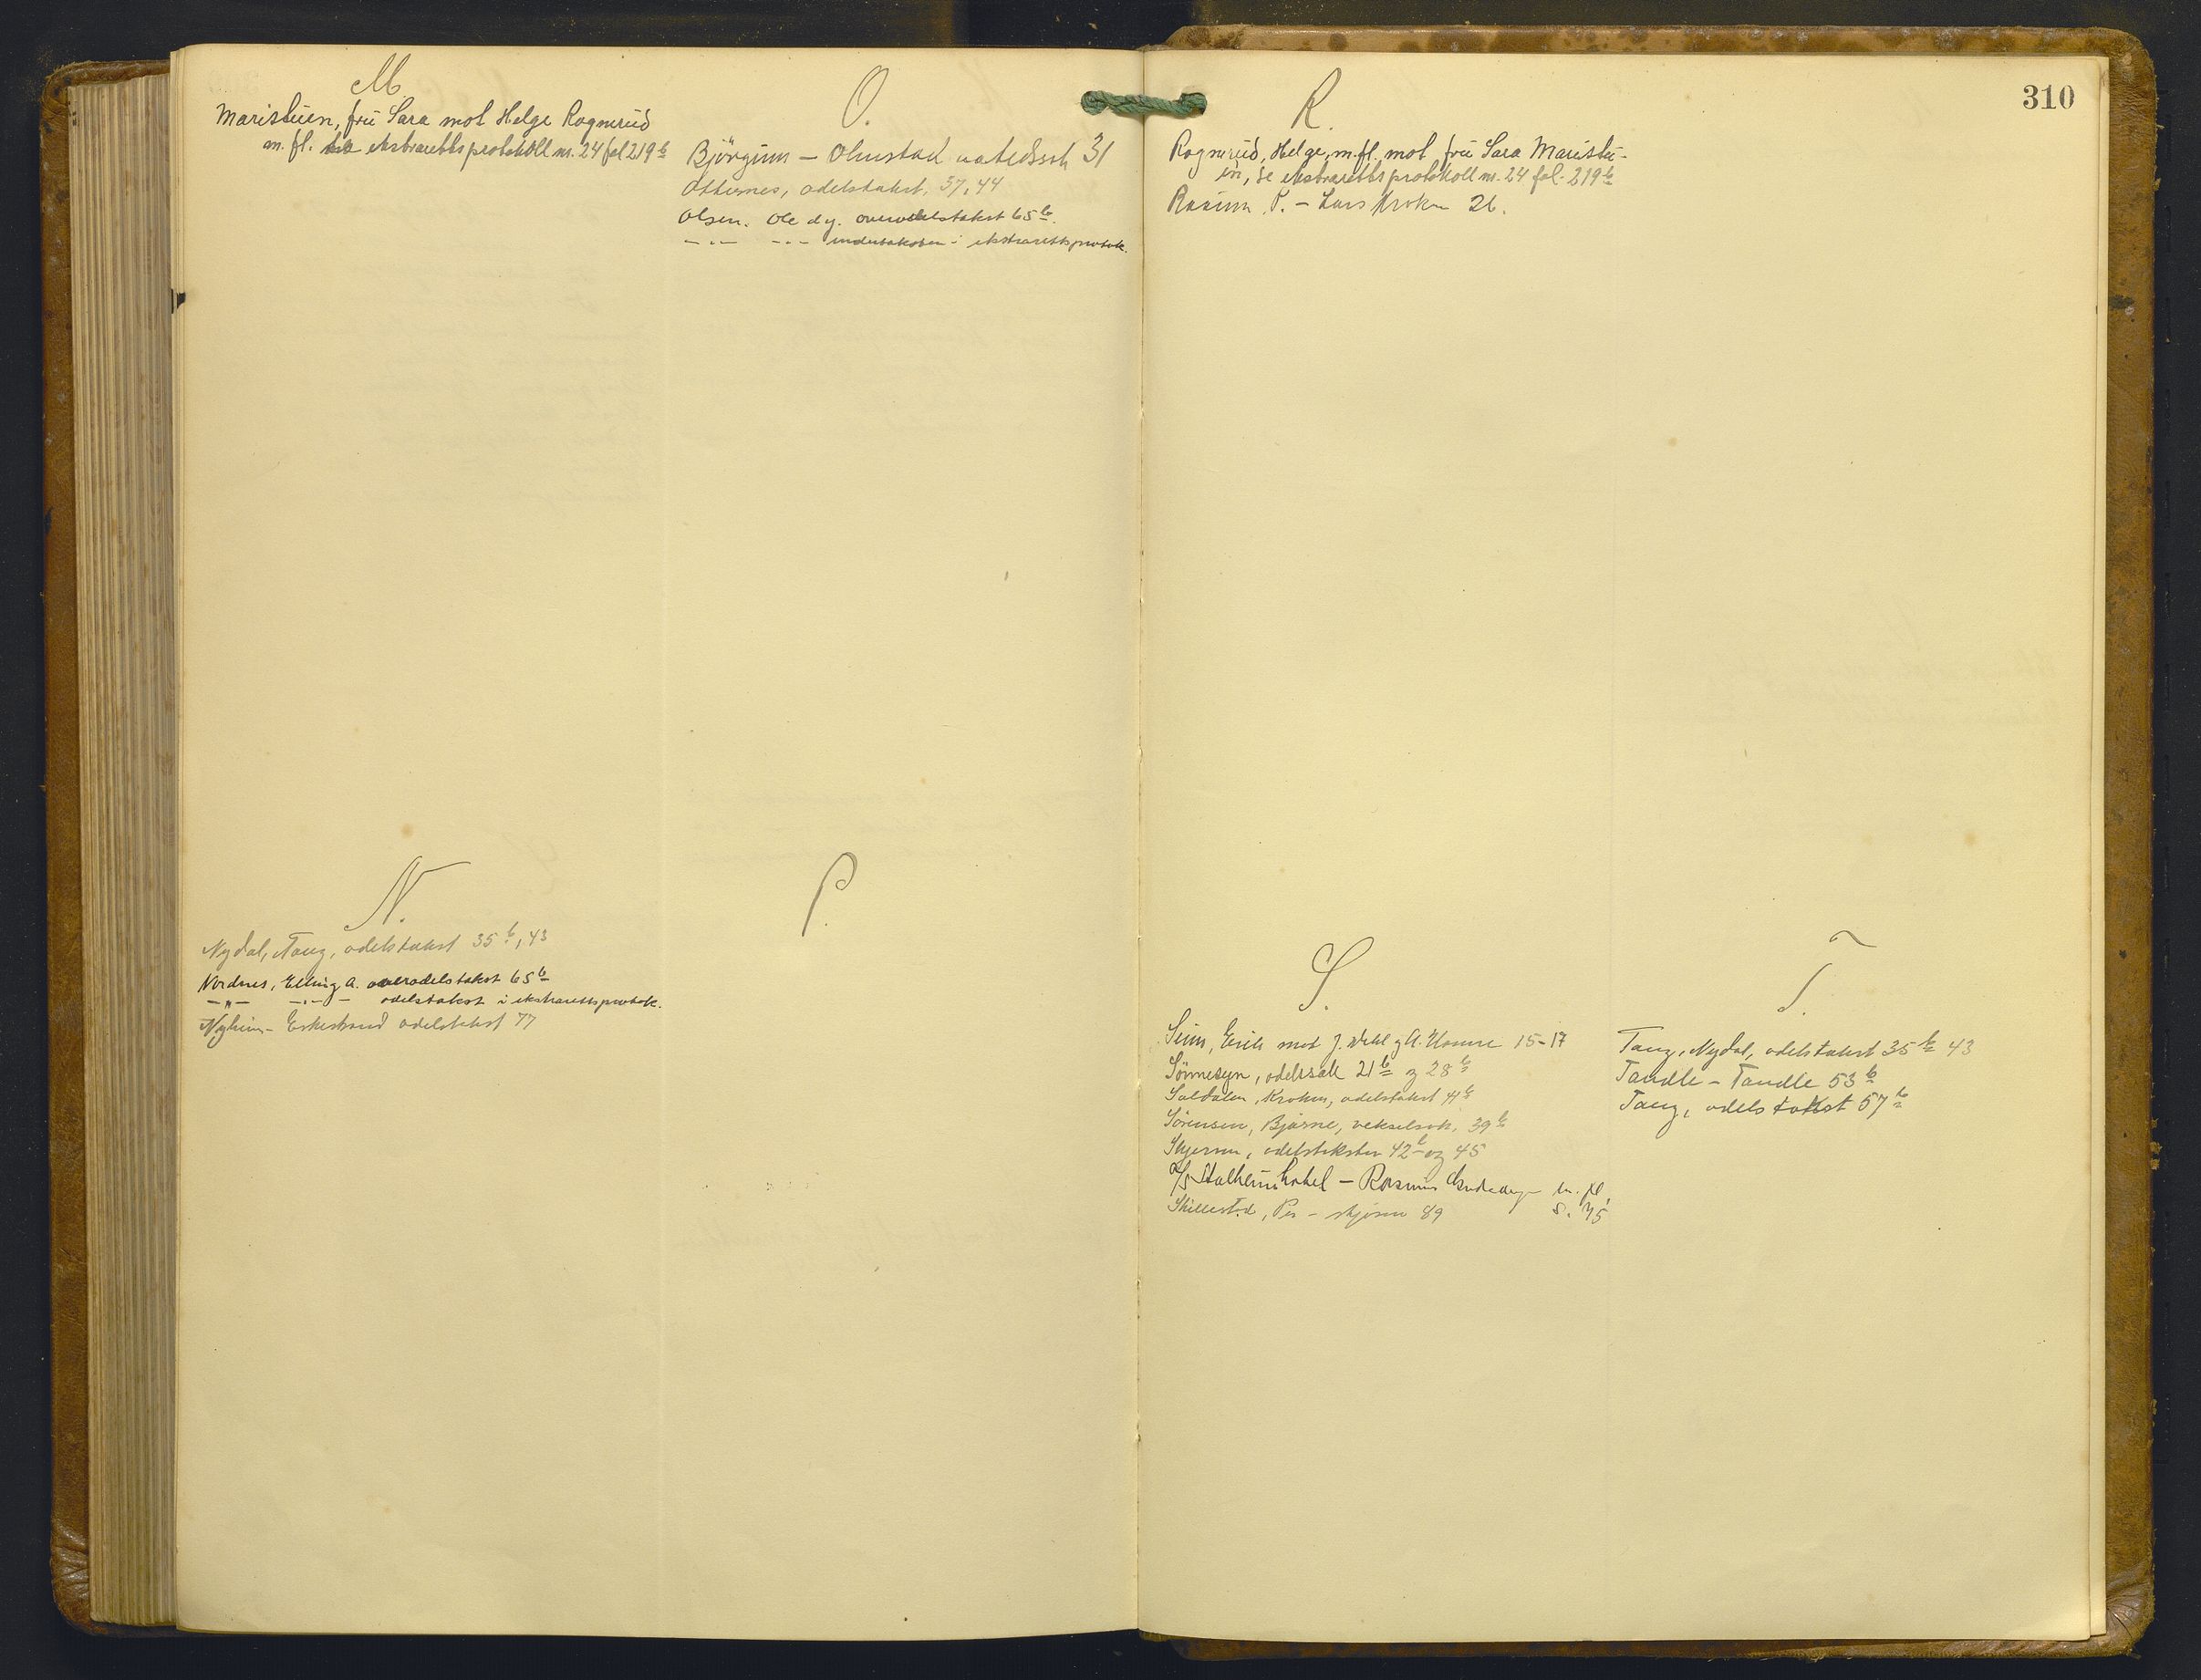 M.
Maristuen, fru Sara mot Helge Rognerud
m. fl. ekstrarettsprotokoll nr. 24 fol 219 b
O.
Bjørgum – Olmstad 31
Otternes, odelstakst, 37, 44
Olsen. Ole d.y. overodelstakst 65 b.
–"– –"– i ekstrarettsprotok.
N.
Nydal, Tang, odelstakst 35 b, 43
Nordnes, Elling A. overodelstakst 65 b
–"– –"– odelstakst i ekstrarettsprotok.
Nyheim – odelstakst 77
P.
310
R.
Rognerud, Helge, m. fl. mot fru Sara Maristu-
en, se ekstrarettsprotokoll nr. 24 fol. 219 b
P. – Lars Kroken 26.
S.
Seim, Erik mot J. 15-17
Sønnesyn, odelssak 21 b og 28 b
Kroken, odelstakst 41 b
Sørensen, Bjarne, vekselsak, 39 b
odelstakster 42 b og 45
A/S Stalheim hotel – Rasmus m. fl.,
s. 75
Skillestad, Per – 89
T.
Tang, Nydal, odelstakst 35 b 43
Tandle – Tandle 53 b
Tang, odelstakst 57 b